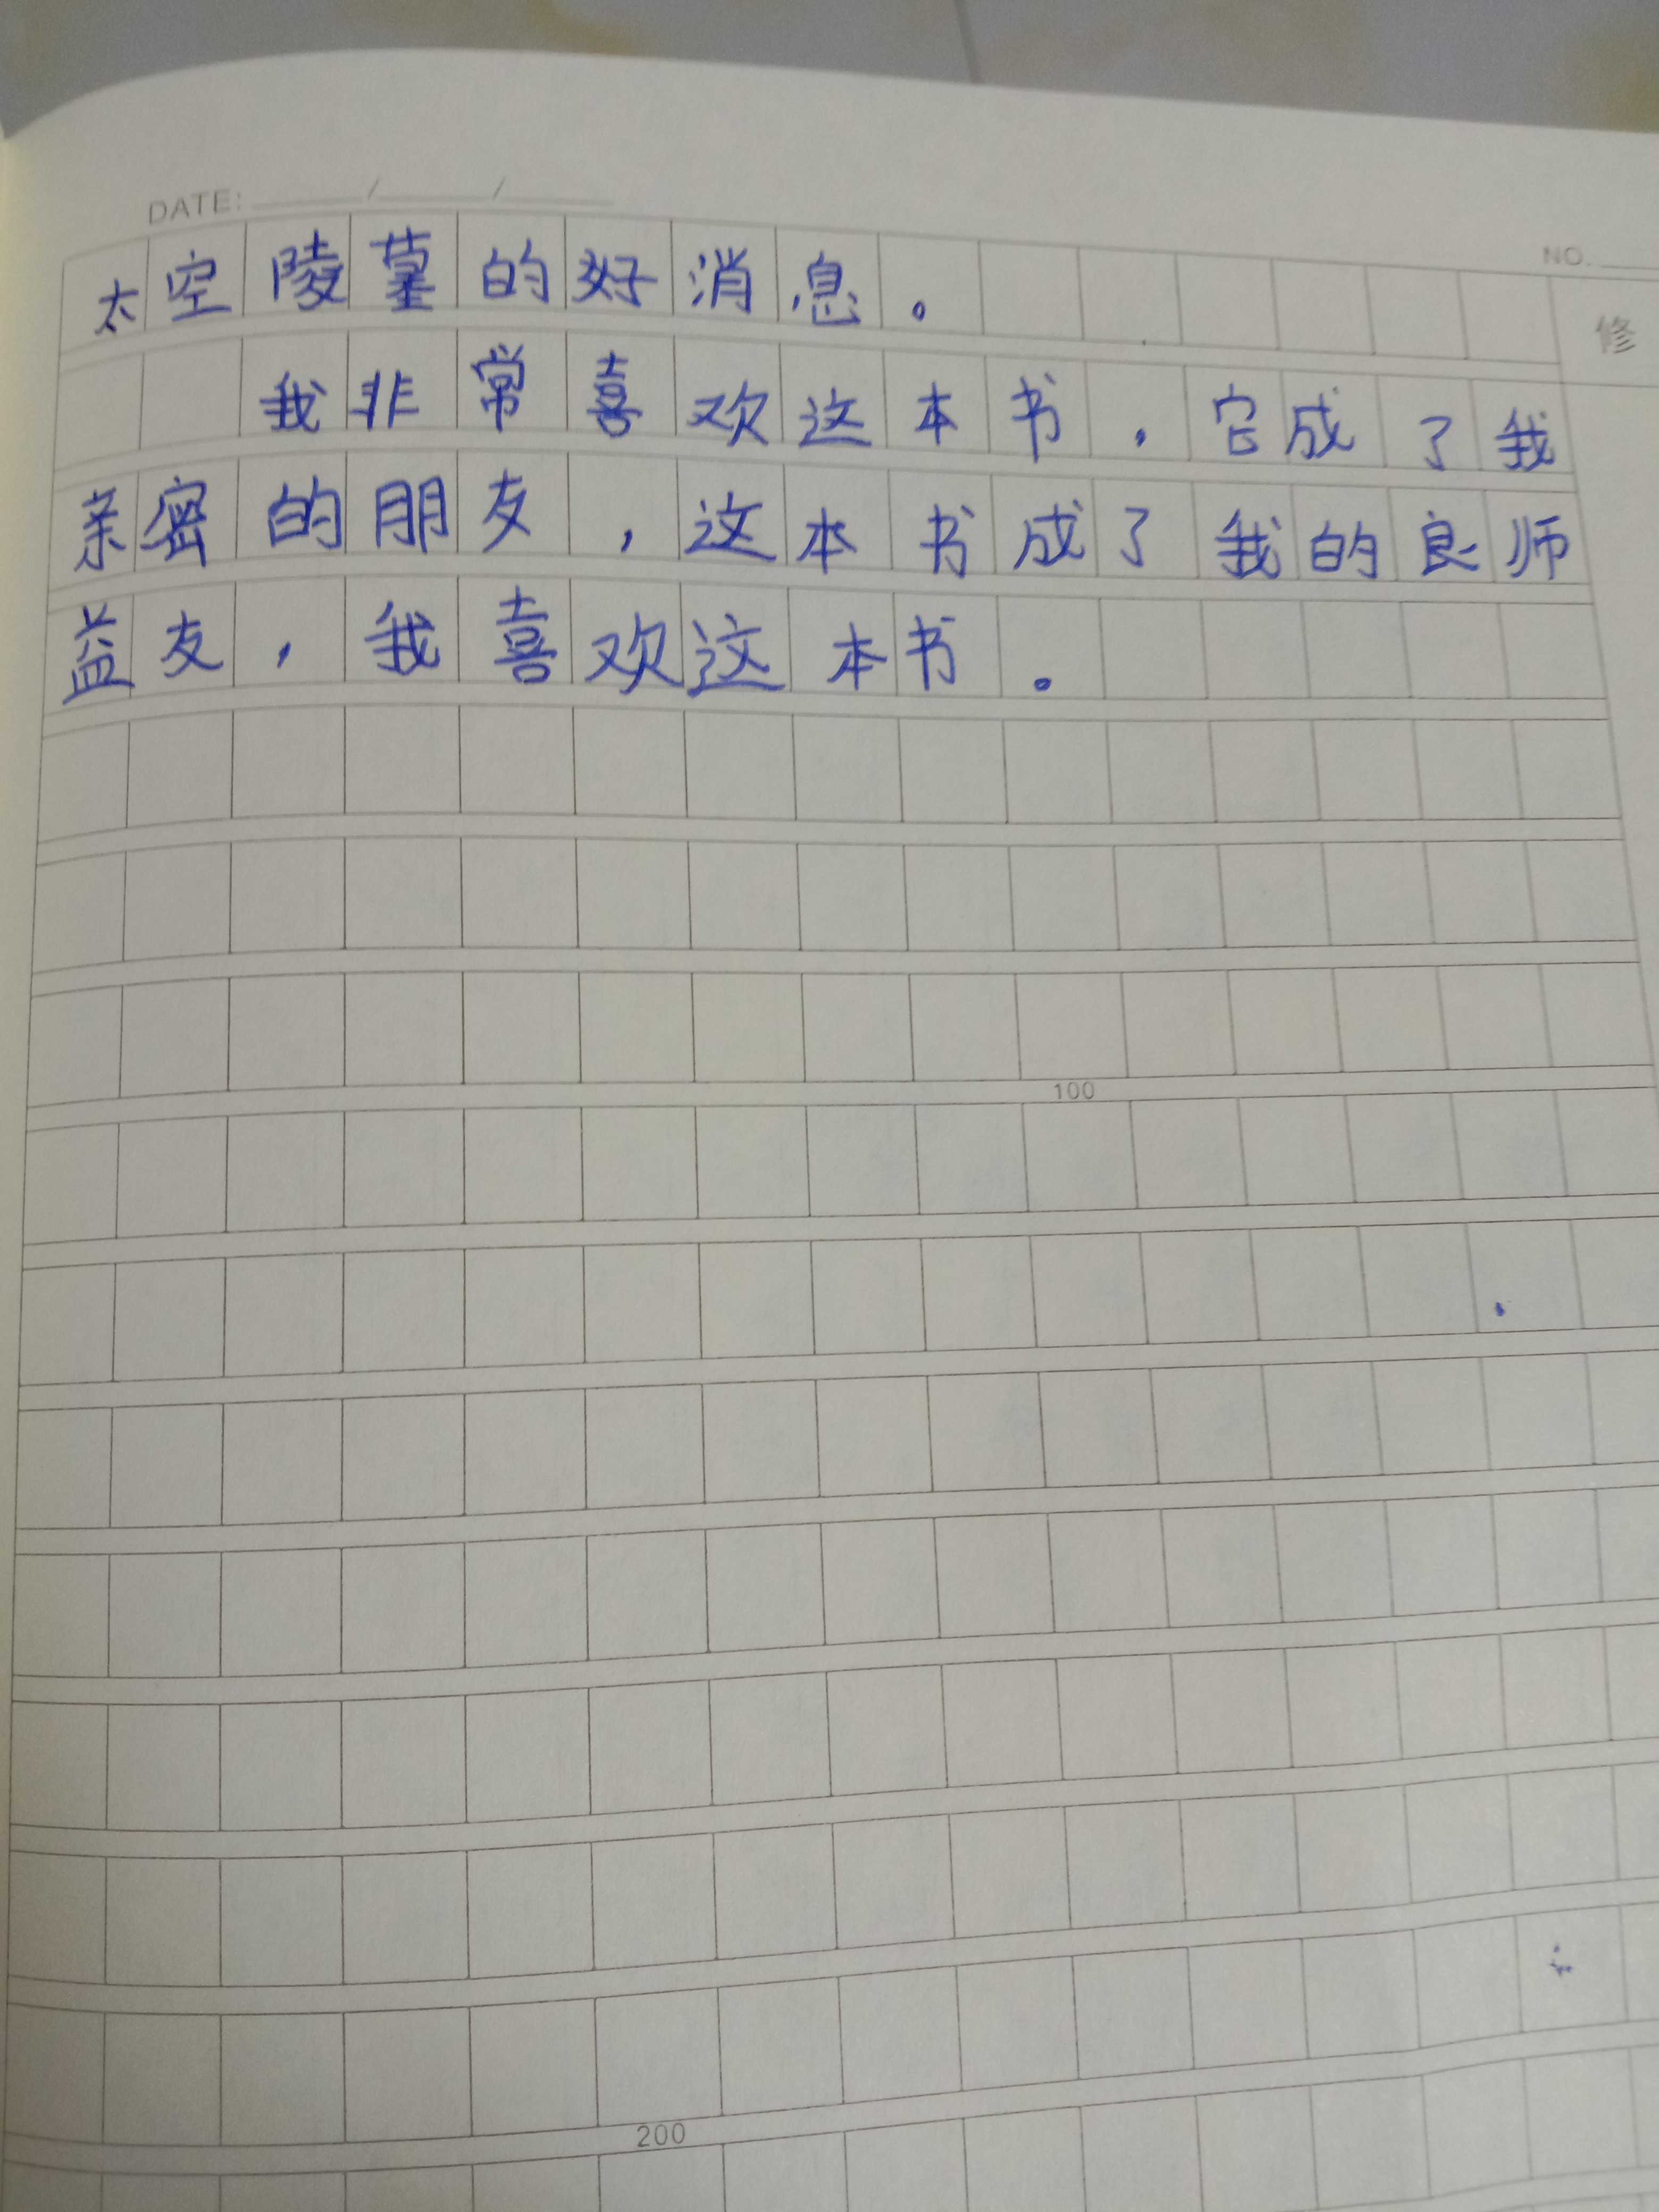 DATE: / /
NO.
太空陵墓的好消息。
修
我非常喜欢这本书，它成了我
亲密的朋友，这本书成了我的良师
益友，我喜欢这本书。
100
200